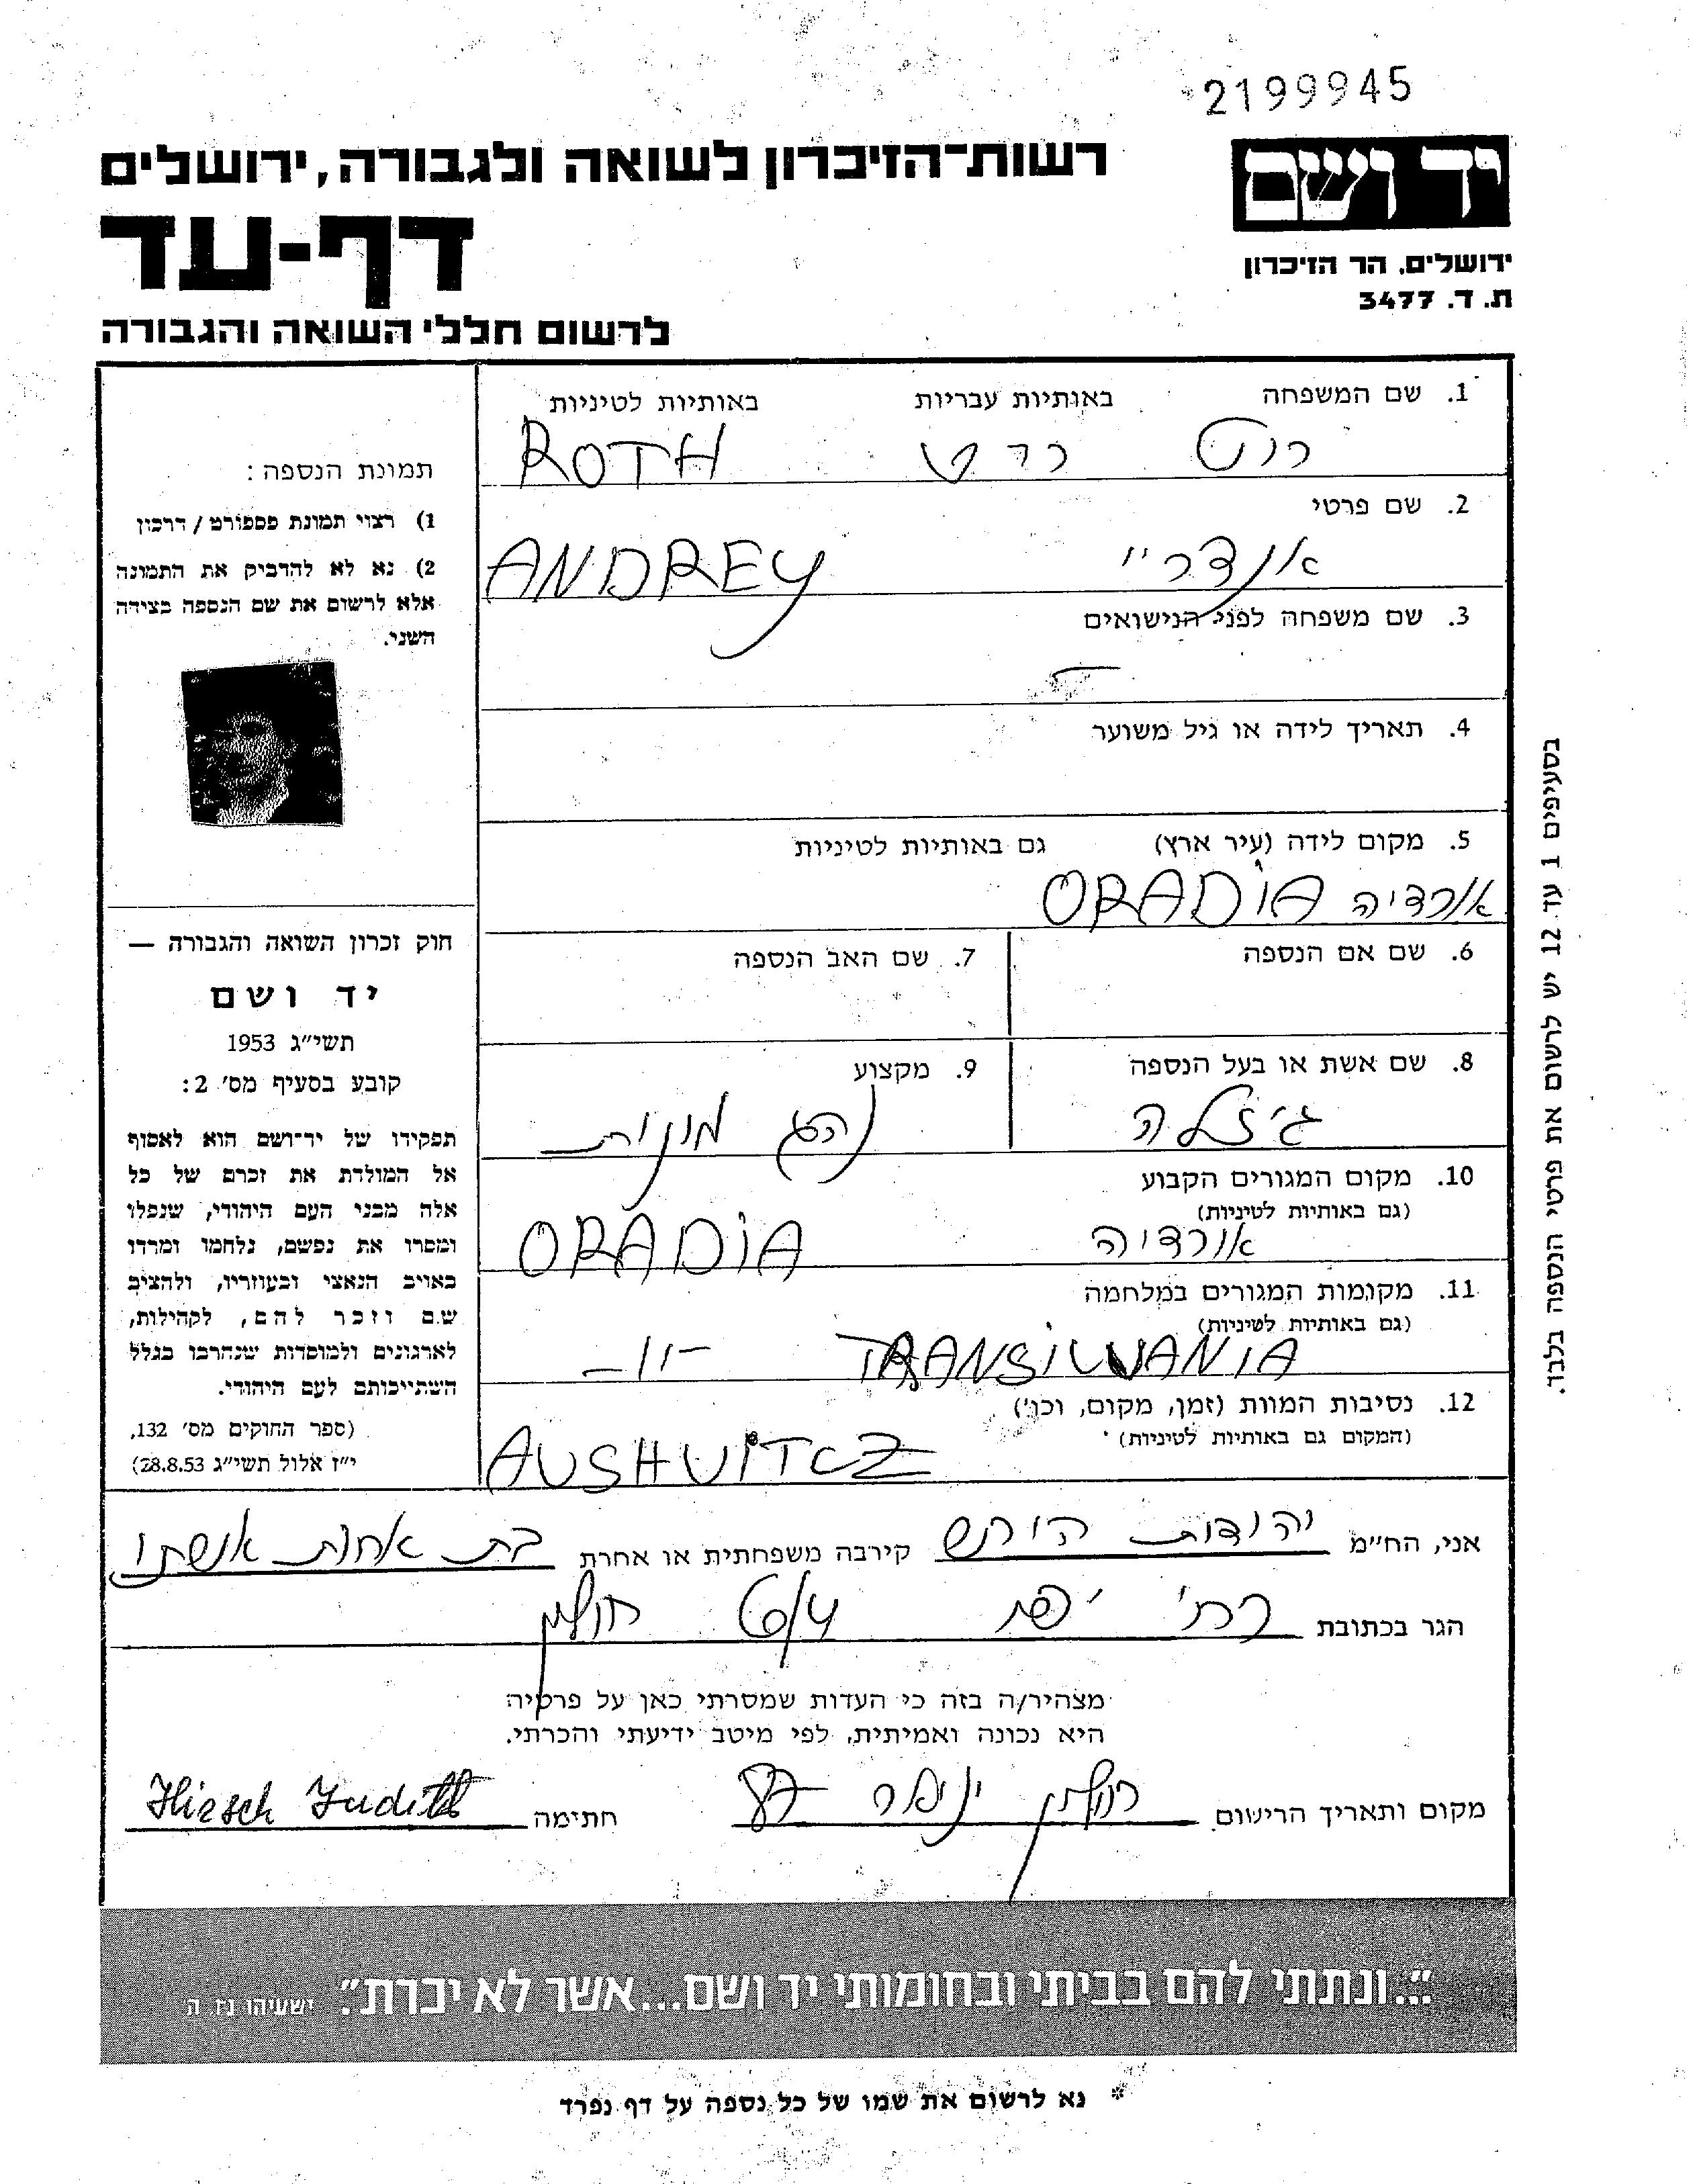 2199945
רשות־הזיכרון לשואה ולגבורה, ירושלים
יד ושם
דף-עד
ירושלים, הר הזיכרון
ת. ד. 3477
לרשום חללי השואה והגבורה
1. שם המשפחה באותיות עבריות באותיות לטיניות
רוט רוט ROTH
2. שם פרטי
אנדריי ANDREY
3. שם משפחה לפני הנישואים
4. תאריך לידה או גיל משוער
5. מקום לידה (עיר ארץ) גם באותיות לטיניות
אורדיה ORADIA
6. שם אם הנספה
7. שם האב הנספה
8. שם אשת או בעל הנספה
ג'זלה
9. מקצוע
נהג מונית
10. מקום המגורים הקבוע
(גם באותיות לטיניות)
אורדיה ORADIA
11. מקומות המגורים במלחמה
(גם באותיות לטיניות)
TRANSILVANIA -11-
12. נסיבות המוות (זמן, מקום, וכו')
(המקום גם באותיות לטיניות)
AUSHVITCZ
תמונת הנספה:
1) רצוי תמונת פספורט / דרכון
2) נא לא להדביק את התמונה
אלא לרשום את שם הנספה בצידה
השני.
חוק זכרון השואה והגבורה —
יד ושם
תשי״ג 1953
קובע בסעיף מס' 2:
תפקידו של יד־ושם הוא לאסוף
אל המולדת את זכרם של כל
אלה מבני העם היהודי, שנפלו
ומסרו את נפשם, נלחמו ומרדו
באויב הנאצי ובעוזריו, ולהציב
שם וזכר להם, לקהילות,
לארגונים ולמוסדות שנחרבו בגלל
השתייכותם לעם היהודי.
(ספר החוקים מס' 132,
י״ז אלול תשי״ג 28.8.53)
בסעיפים 1 עד 12 יש לרשום את פרטי הנספה בלבד.
אני, הח״מ יהודית הירש קירבה משפחתית או אחרת בת אחות אשתו
הגר בכתובת רח' יפת 6/4 חולון
מצהיר/ה בזה כי העדות שמסרתי כאן על פרטיה
היא נכונה ואמיתית, לפי מיטב ידיעתי והכרתי.
מקום ותאריך הרישום חולון ינואר חתימה Hirsch Judith
״...ונתתי להם בביתי ובחומותי יד ושם...אשר לא יכרת״. ישעיהו נז ה
* נא לרשום את שמו של כל נספה על דף נפרד